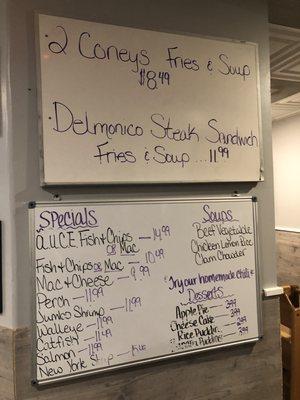 2 Coneys Fries & Soup
$8.49
Delmonico Steak Sandwich
Fries & Soup ... 11.99
Specials
A.U.C.E Fish & Chips — 14.99
OR Mac
Fish & Chips OR Mac — 10.49
Mac & Cheese — 9.99
Perch — 11.99
Jumbo Shrimp — 11.99
Walleye — 11.99
Catfish — 11.99
Salmon — 11.99
New York Strip —
Soups
Beef Vegetable
Chicken Lemon Rice
Clam Chowder
Try your homemade chili
Desserts
Apple Pie
Cheese Cake
Rice Pudding
Pudding